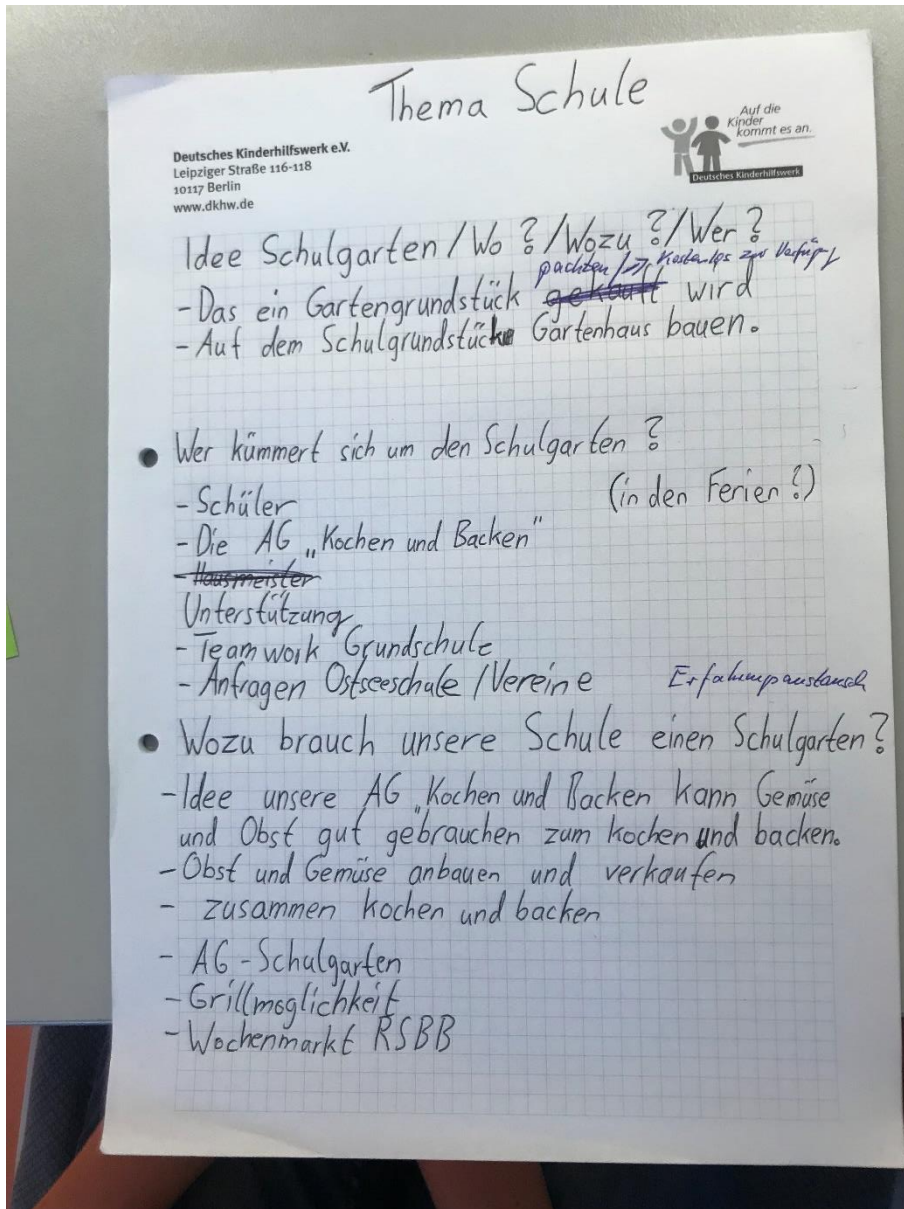 Thema Schule
Auf die
Kinder
kommt es an.
Deutsches Kinderhilfswerk
Deutsches Kinderhilfswerk e.V.
Leipziger Straße 116-118
10117 Berlin
www.dkhw.de
Idee Schulgarten / Wo ? / Wozu ? / Wer ?
pachten / → kostenlos zur Verfügung
- Das ein Gartengrundstück gekauft wird
- Auf dem Schulgrundstück Gartenhaus bauen.
• Wer kümmert sich um den Schulgarten ?
(in den Ferien ?)
- Schüler
- Die AG „Kochen und Backen"
- Hausmeister
Unterstützung
- Teamwork Grundschule
- Anfragen Ostseeschule / Vereine Erfahrungsaustausch
• Wozu brauch unsere Schule einen Schulgarten ?
- Idee unsere AG „Kochen und Backen kann Gemüse
und Obst gut gebrauchen zum kochen und backen.
- Obst und Gemüse anbauen und verkaufen
- zusammen kochen und backen
- AG - Schulgarten
- Grillmoglichkeit
- Wochenmarkt RSBB